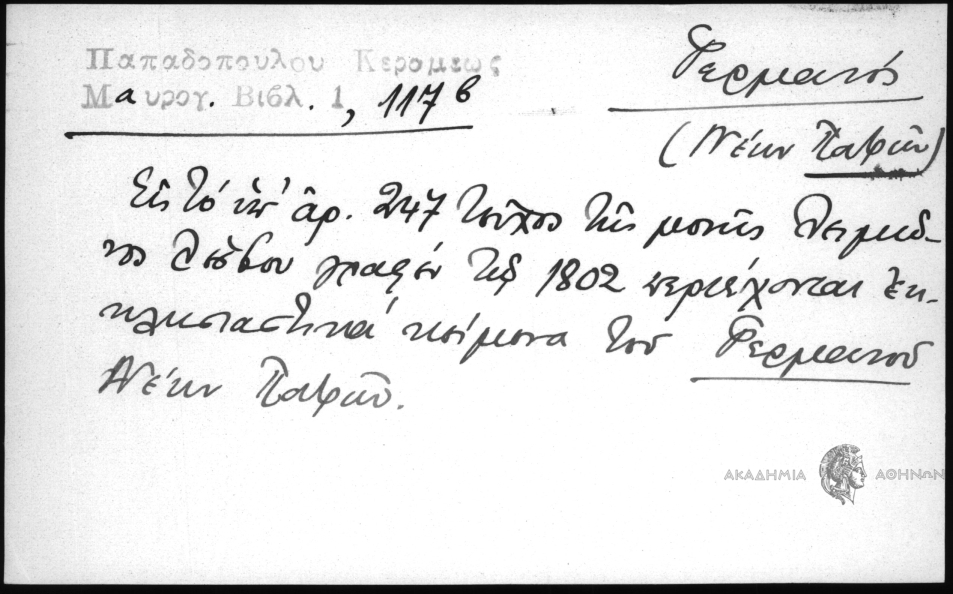 Παπαδοπούλου Κεραμεως
Μαυρογ. Βιβλ. 1, 117β
Γερμανός
(Νέων Πατρῶν)
Εἰς τὸ ὑπ' ἀρ. 247 τεῦχος τῆς μονῆς Λειμῶ-
νος Λέσβου γραφὲν τῷ 1802 περιέχονται ἐκ-
κλησιαστικὰ κείμενα τοῦ Γερμανοῦ
Νέων Πατρῶν.
ΑΚΑΔΗΜΙΑ ΑΘΗΝΩΝ